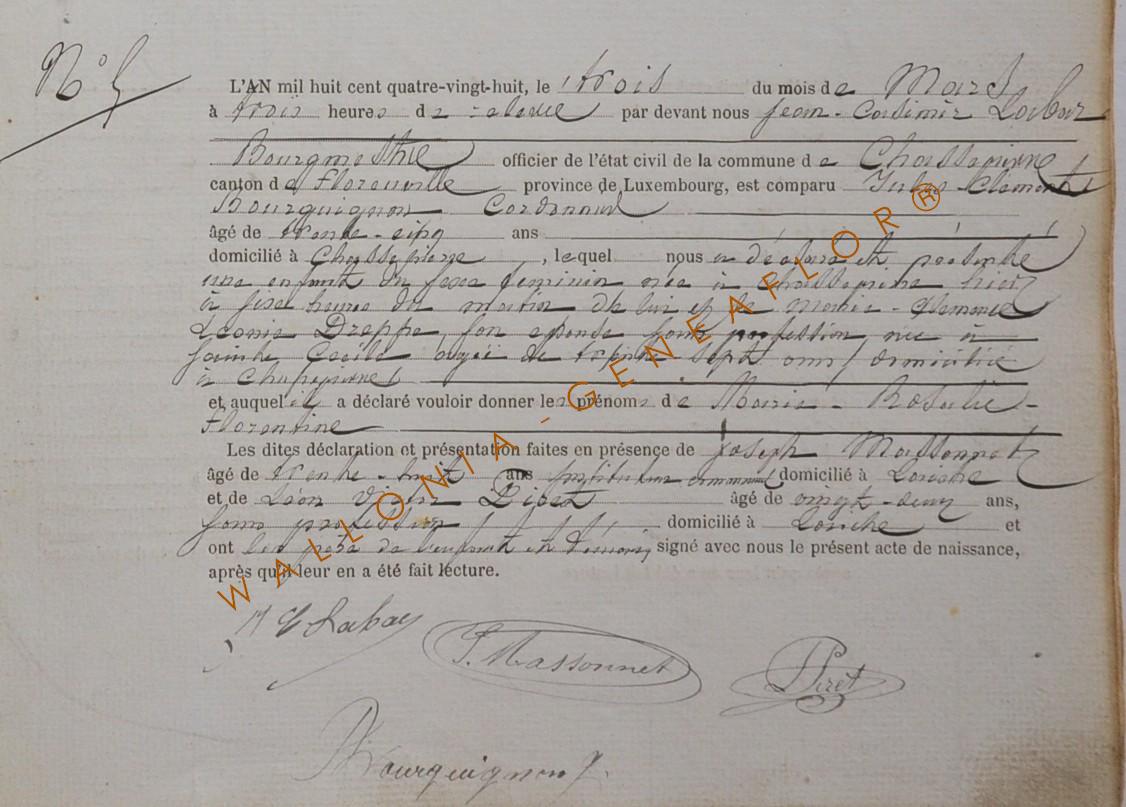 N° 5
L'AN mil huit cent quatre-vingt-huit, le trois du mois de Mars
à trois heures de relevée par devant nous Jean-Casimir Labar
Bourgmestre officier de l'état civil de la commune de Chassepierre
canton de Florenville province de Luxembourg, est comparu Jules Clément
Bourguignon Cordonnier
âgé de trente-cinq ans
domicilié à Chassepierre, lequel nous a déclaré et présenté
une enfant du sexe féminin née à Chassepierre hier
à heures du matin de lui et de Marie-
Léonie Dreppe son épouse sans profession née à
Sainte Cécile âgée de trente sept ans domiciliée
à Chassepierre
et auquel il a déclaré vouloir donner les prénoms de Marie-Rosalie-
Florentine
Les dites déclaration et présentation faites en présence de Joseph Massonnet
âgé de trente-huit ans Instituteur communal domicilié à Laiche
et de Léon Victor Piret âgé de vingt-deux ans,
sans profession domicilié à et
ont le père de l'enfant et témoins signé avec nous le présent acte de naissance,
après qu'il leur en a été fait lecture.
Labar
J. Massonnet
Piret
Bourguignon J.
WALLONIA - GENEAFLOR®